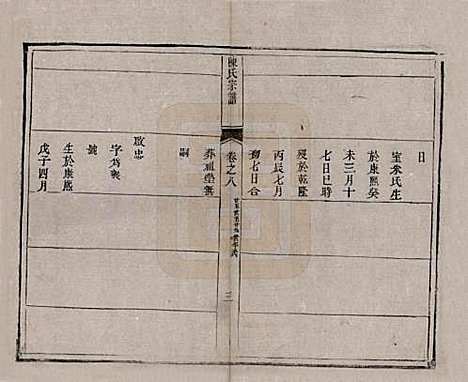 日
室朱氏生
於康熙癸
未三月十
七日巳時
歿於乾隆
丙辰七月
初七日合
葬祖塋無
嗣
陳氏宗譜
卷之八
三
啟忠
字為襄
號
生於康熙
戊子四月